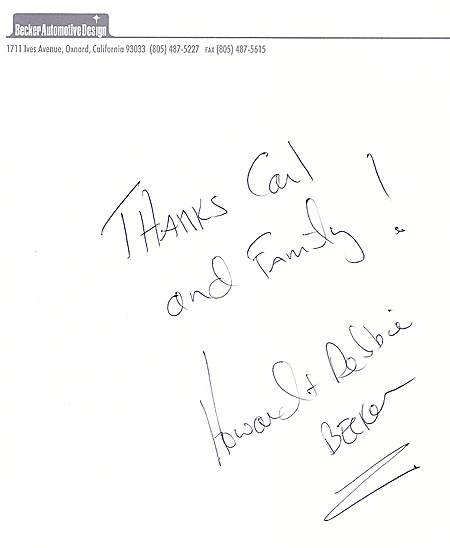 Becker Automotive Design
1711 Ives Avenue, Oxnard, California 93033 (805) 487-5227 FAX (805) 487-5615
THANKS Carl
and Family!
Howard + Debbie
BECKER